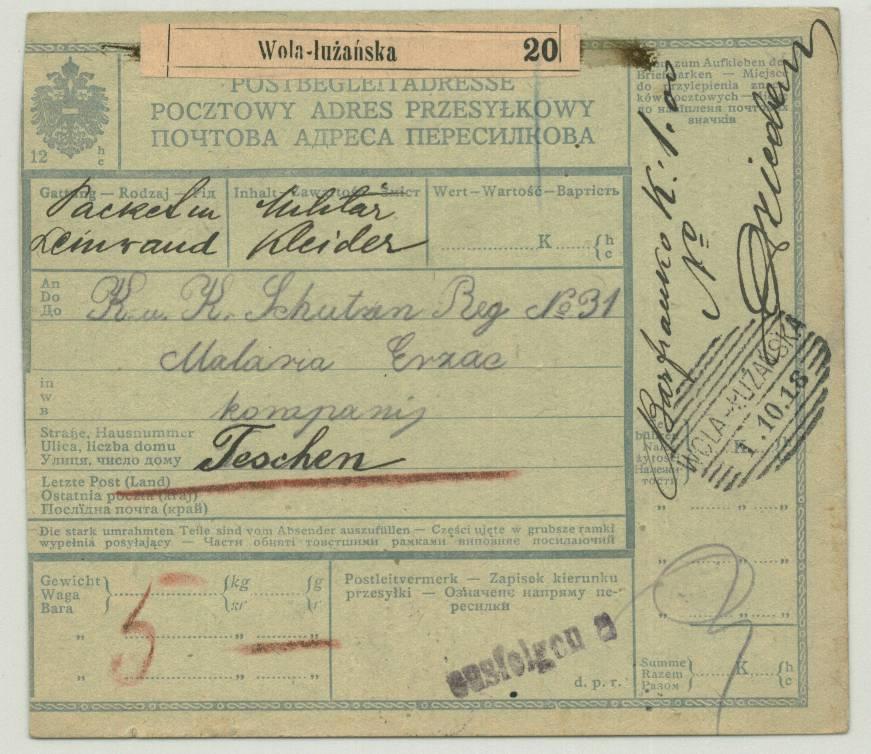 Wola-łużańska 20
POSTBEGLEITADRESSE
POCZTOWY ADRES PRZESYŁKOWY
ПОЧТОВА АДРЕСА ПЕРЕСИЛКОВА
12 h
c
zum Aufkleben der
Briefmarken — Miejsce
do przylepienia znacz-
ków pocztowych
до наліпленя почтових
значків
Gattung — Rodzaj — Рід
Packel in
Leinwand
Inhalt — Zawartość — Зміст
Militär
Kleider
Wert — Wartość — Вартість
K h
c
An
Do
До
K. u. K. Schutzen Reg No 31
Malaria Erzac
in
w
в
kompanij
Straße, Hausnummer
Ulica, liczba domu
Улиця, число дому
Teschen
Letzte Post (Land)
Ostatnia poczta (kraj)
Послїдна почта (край)
Die stark umrahmten Teile sind vom Absender auszufüllen — Części ujęte w grubsze ramki
wypełnia posyłający — Части обняті товстшими рамками виповняє посилаючий
Barfranko K. 1.00
No
WOLA-ŁUŻAŃSKA
1.10.18
K
Gewicht
Waga
Вага
kg g
кг г
5
" "
" "
Postleitvermerk — Zapisek kierunku
przesyłki — Означенє напряму пе-
ресилки
d. p. r.
Summe
Razem
Разом
K h
c